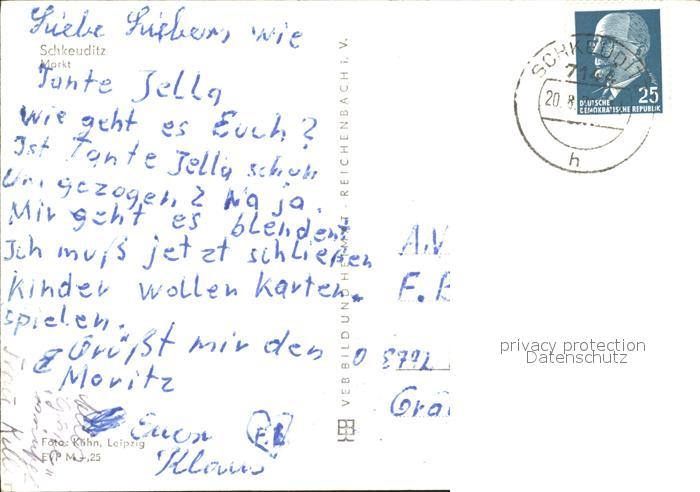 Liebe Lieben, wie
Schkeuditz
Markt
Tante Jella
wie geht es Euch?
Ist Tante Jella schon
Umgezogen? Na ja.
Mir geht es blendent
Ich muß jetzt schließen
Kinder wollen Karten
spielen.
Grüßt mir den
Moritz
Euer
Klaus
Foto: Kühn, Leipzig
EVP M -,25
VEB BILD UND HEIMAT · REICHENBACH i. V.
SCHKEUDITZ
20.8.
h
25
DEUTSCHE
DEMOKRATISCHE REPUBLIK
A.V
F. B
Grä
privacy protection
Datenschutz